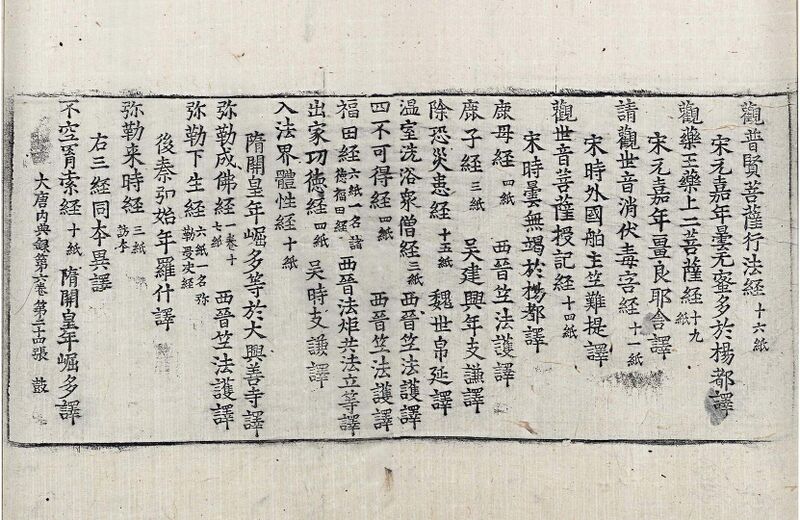 觀普賢菩薩行法經 十六紙
宋元嘉年曇无蜜多於楊都譯
觀藥王藥上二菩薩經 十九紙
宋元嘉年畺良耶舍譯
請觀世音消伏毒害經 十一紙
宋時外國舶主竺難提譯
觀世音菩薩授記經 十四紙
宋時曇無竭於楊都譯
鹿母經 四紙 西晉竺法護譯
鹿子經 三紙 吳建興年支謙譯
除恐灾患經 十五紙 魏世帛延譯
温室洗浴衆僧經 三紙 西晉竺法護譯
四不可得經 四紙 西晉竺法護譯
福田經 六紙一名諸德福田經 西晉法炬共法立等譯
出家功德經 四紙 吳時支謙譯
入法界體性經 十紙
隋開皇年崛多等於大興善寺譯
弥勒成佛經 一卷十七紙 西晉竺法護譯
弥勒下生經 六紙一名弥勒受决經
後秦弘始年羅什譯
弥勒来時經 三紙 訪本
右三經同本異譯
不空罥索經 十紙 隋開皇年崛多譯
大唐内典錄第六卷 第二十四張 鼓